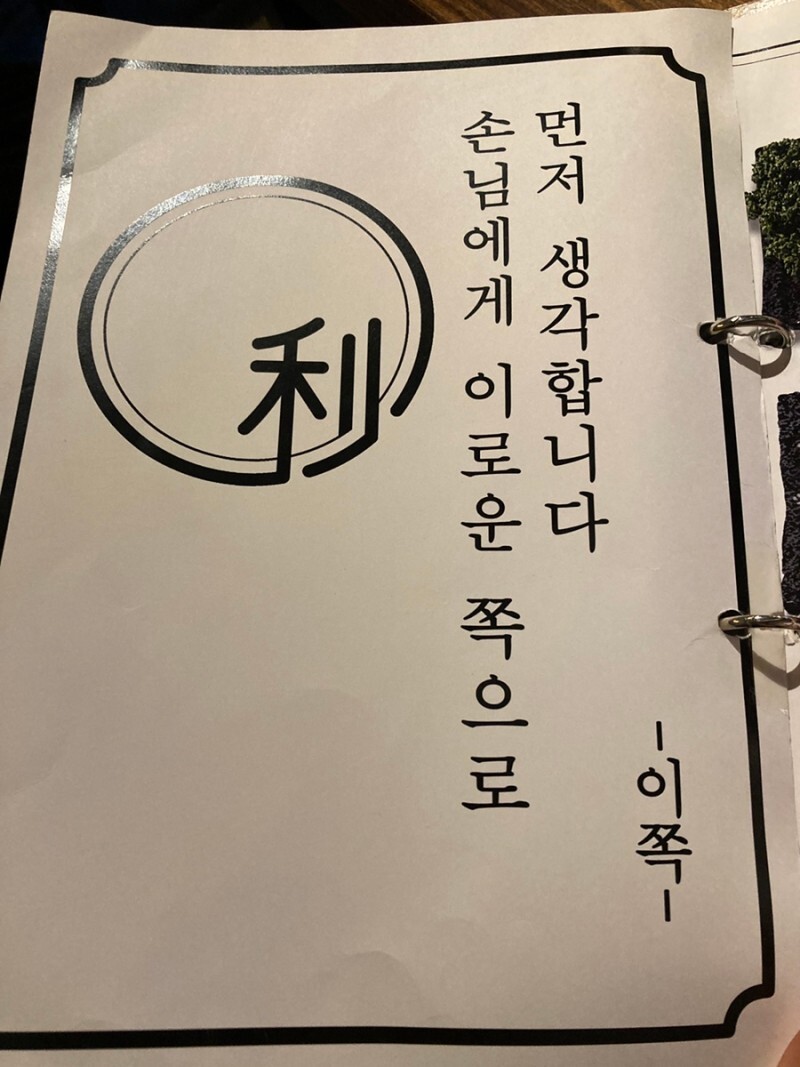 利
손님에게 이로운 쪽으로
먼저 생각합니다
-이쪽-